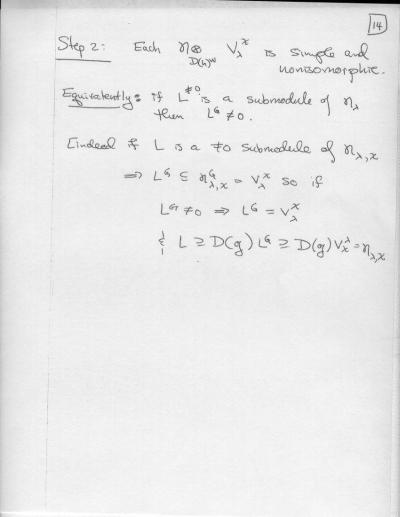 14
Step 2: Each η ⊗_{D(h)^W} V_λ^χ is simple and
nonisomorphic.
Equivalently: if L^{≠0} is a submodule of η_λ
then L^G ≠ 0.
[indeed if L is a ≠0 submodule of η_{λ,χ}
⇒ L^G ⊆ η_{λ,χ}^G = V_λ^χ so if
L^G ≠ 0 ⇒ L^G = V_λ^χ
& L ⊇ D(g) L^G ⊇ D(g) V_χ^λ = η_{λ,χ}